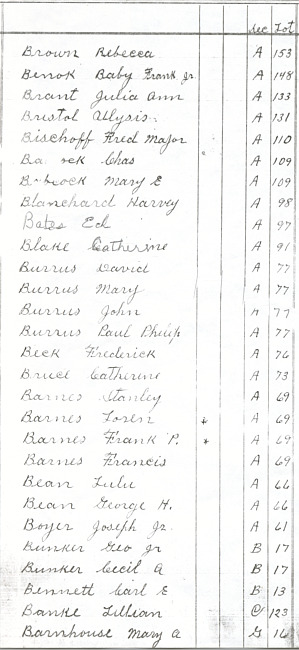 Sec Lot
Brown Rebecca A 153
Benok Baby Frank Jr A 148
Brant Julia Ann A 133
Bristol Ulysis A 131
Bischoff Fred Major A 110
Ba ock Chas A 109
B bcock Mary E A 109
Blanchard Harvey A 98
Bates Ed A 97
Blake Catherine A 91
Burrus David A 77
Burrus Mary A 77
Burrus John A 77
Burrus Paul Philip A 77
Beck Frederick A 76
Bruce Catherine A 73
Barnes Stanley A 69
Barnes Loren * A 69
Barnes Frank P. * A 69
Barnes Francis A 69
Bean Lulu A 66
Bean George H. A 66
Boyer Joseph Jr. A 61
Bunker Geo Jr B 17
Bunker Cecil A B 17
Bennett Carl E B 13
Banke Lillian C 123
Barnhouse Mary A G 16